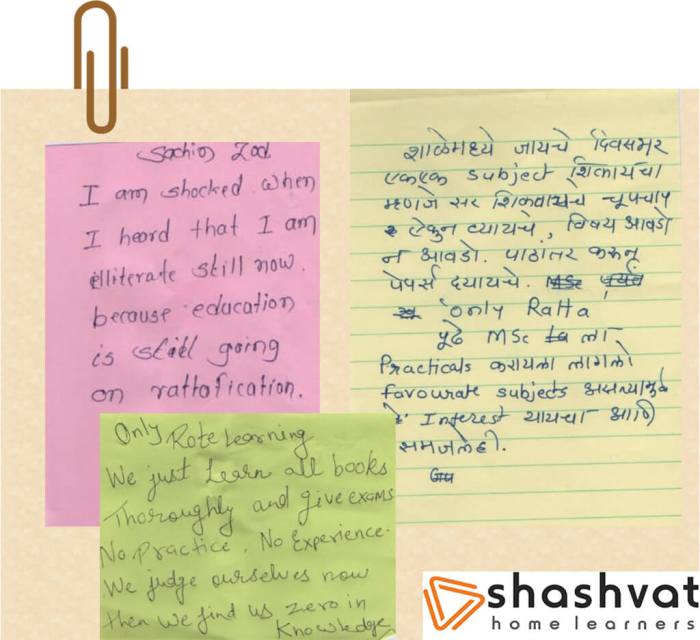 Sachin Zod
I am shocked when
I heard that I am
elliterate still now.
because education
is still going
on rattafication.
Only Rote Learning
We just Learn all books
Thoroughly and give exams
No Practice. No Experience.
We judge ourselves now
then we find us zero in
Knowledge
शाळेमध्ये जायचे दिवसभर
एकएक subject शिकायचा
म्हणजे सर शिकवायचे चूपचाप
ऐकुन घ्यायचे, विषय आवडो
न आवडो. पाठांतर करून
पेपर्स दयायचे.
"only Ratta
पूढे MSc ला
Practicals करायला लागलो
favourate subjects असल्यामुळे
Interest यायचा आणि
समजलेही.
shashvat
home learners